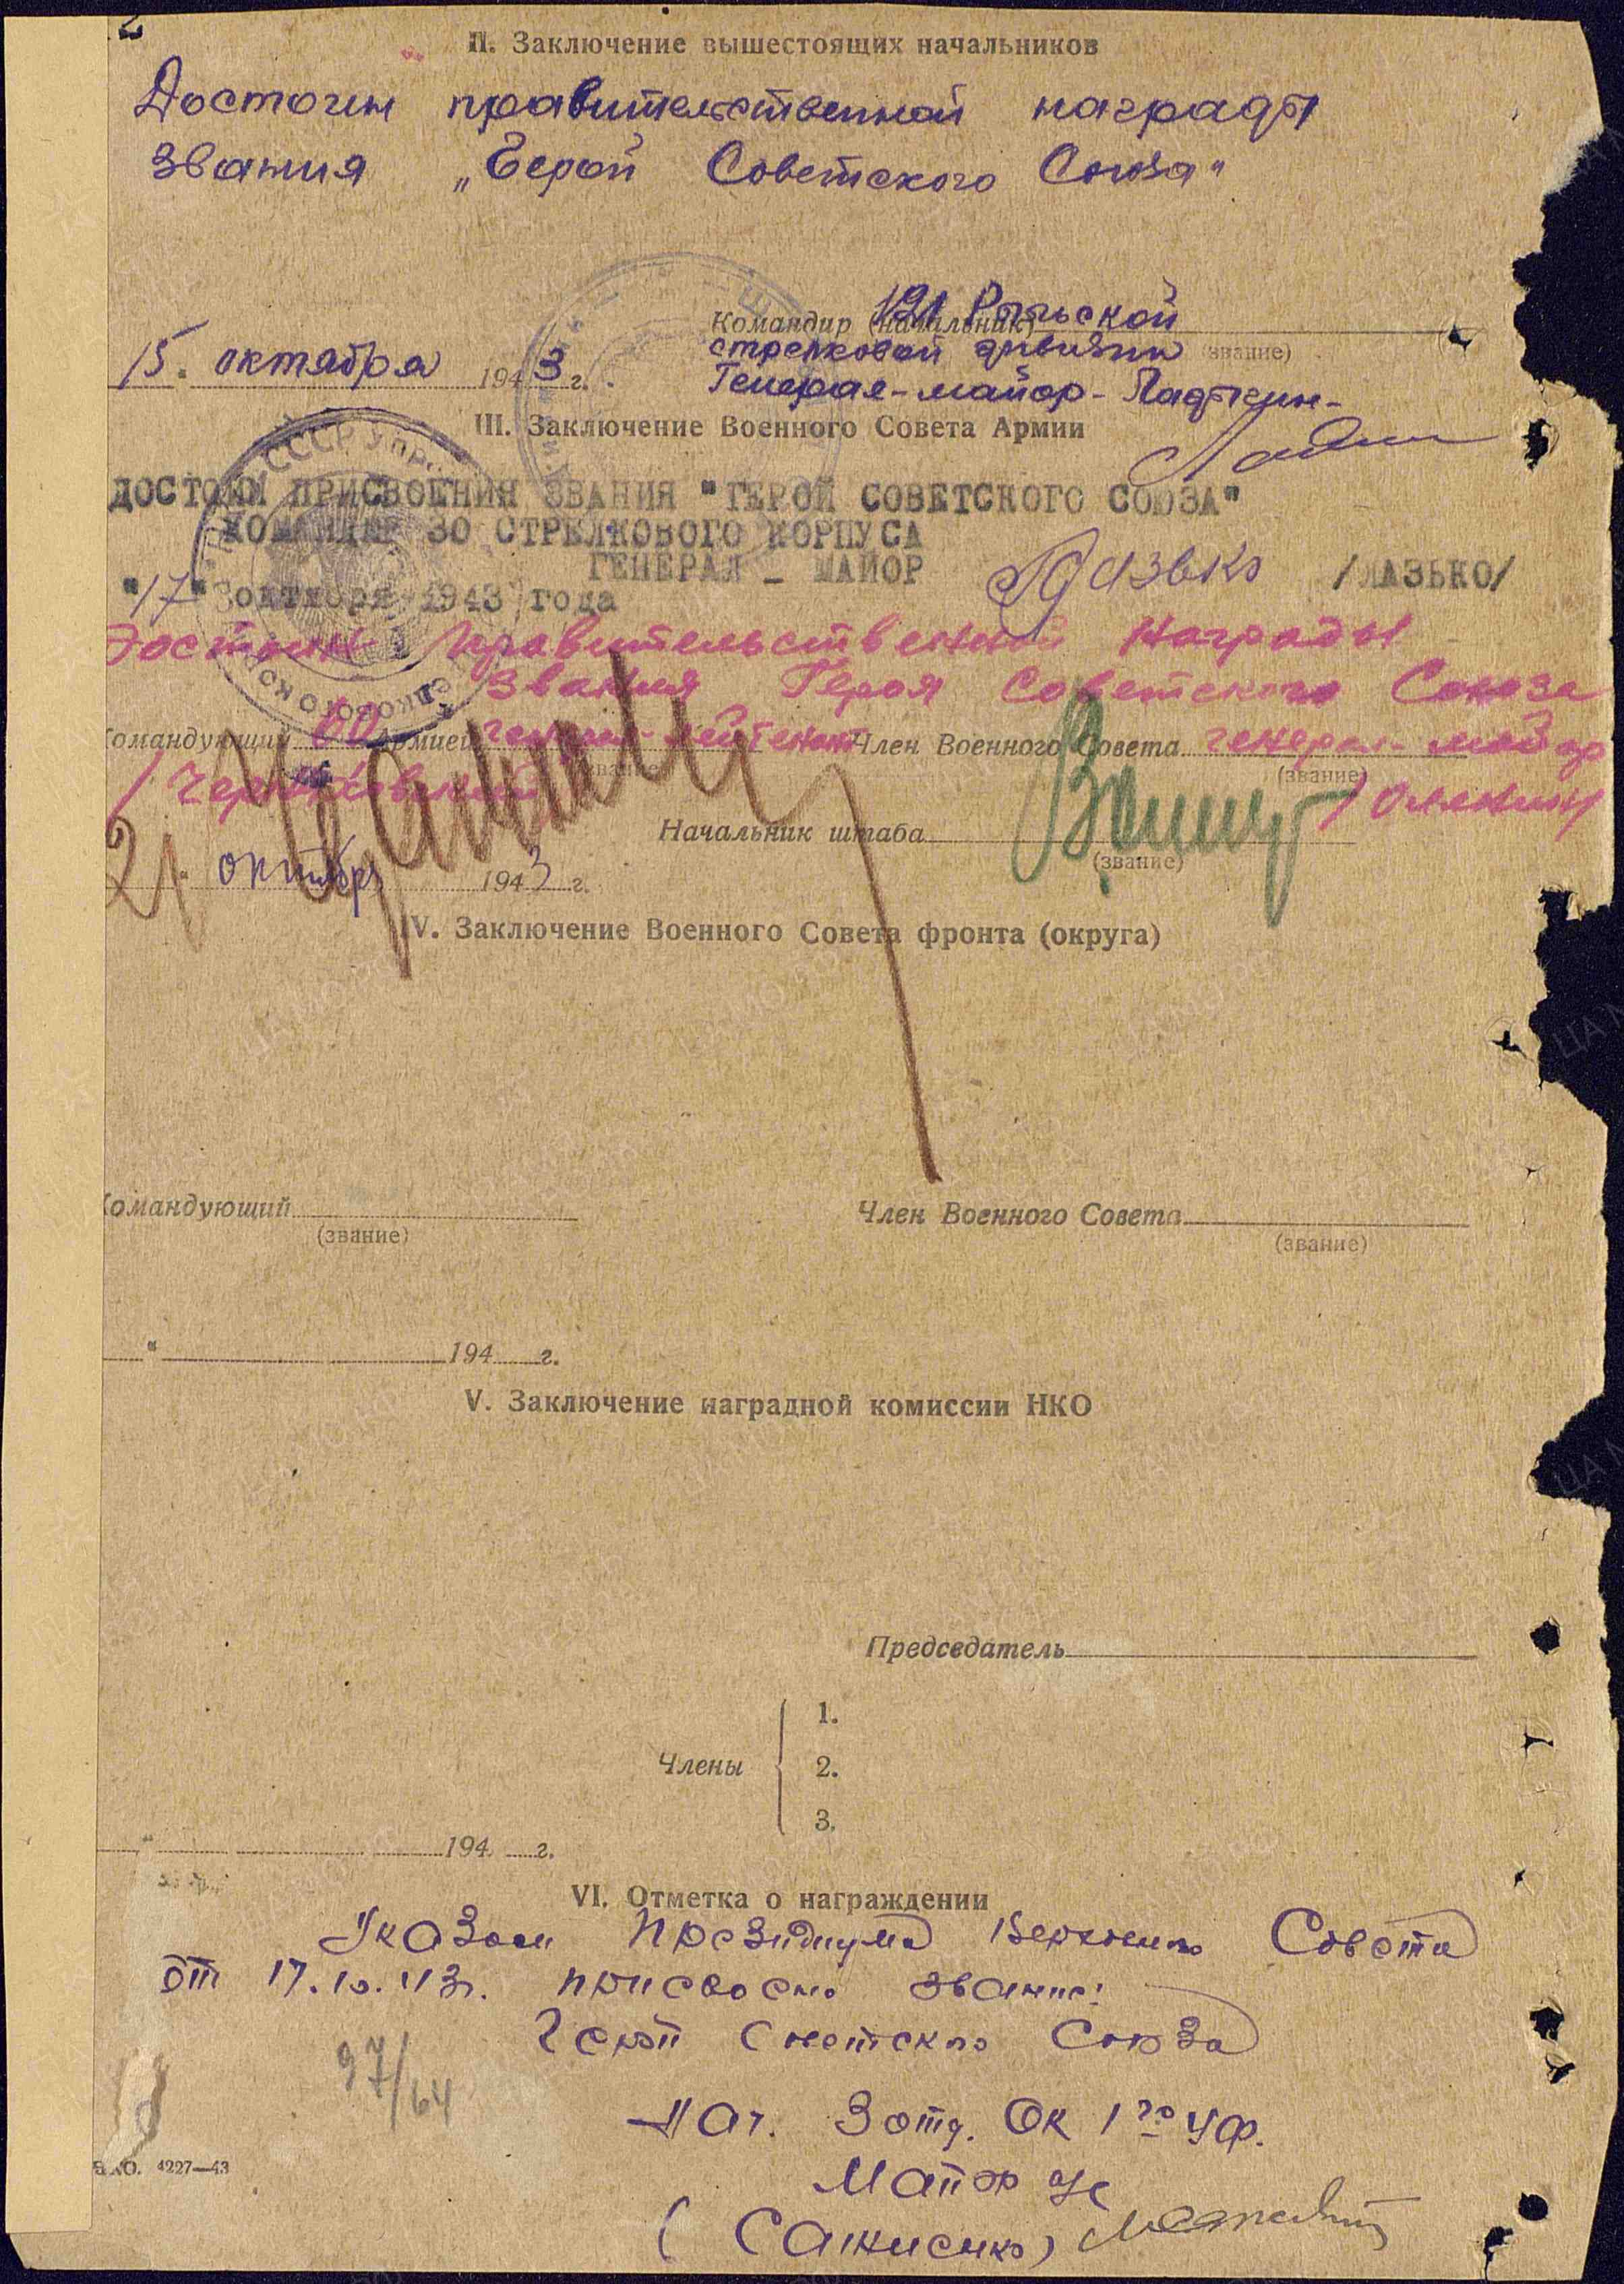 II. Заключение вышестоящих начальников
Достоин правительственной награды
звания „Герой Советского Союза"
Командир (начальник) 121 Рыльской
стрелковой дивизии (звание)
15. октября 1943 г.
Генерал-майор- Ладыгин-
III. Заключение Военного Совета Армии
ДОСТОИН ПРИСВОЕНИЯ ЗВАНИЯ "ГЕРОЙ СОВЕТСКОГО СОЮЗА"
КОМАНДИР 30 СТРЕЛКОВОГО КОРПУСА
ГЕНЕРАЛ _ МАЙОР Лазько /ЛАЗЬКО/
"17" октября 1943 года
Достоин Правительственной Награды
Звания Героя Советского Союза
Командующий 60 Армией генерал-лейтенант Член Военного Совета генерал-майор
(звание) (звание)
/Черняховский/ /Оленин/
Начальник штаба
(звание)
21 октября 1943 г.
IV. Заключение Военного Совета фронта (округа)
Командующий Член Военного Совета
(звание) (звание)
" 194 г.
V. Заключение наградной комиссии НКО
Председатель
1.
Члены 2.
3.
" 194 г.
VI. Отметка о награждении
Указом Президиума Верховного Совета
от 17.10.43г. присвоено звание:
Герой Советского Союза
97/64
Нач. 3 отд. ОК 1го УФ.
Майор
4227—43